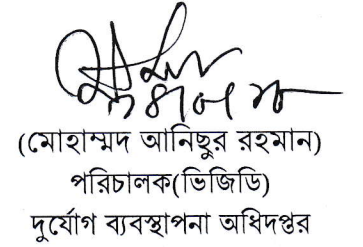 (মোহাম্মদ আনিছুর রহমান)
পরিচালক(ভিজিডি)
দুর্যোগ ব্যবস্থাপনা অধিদপ্তর